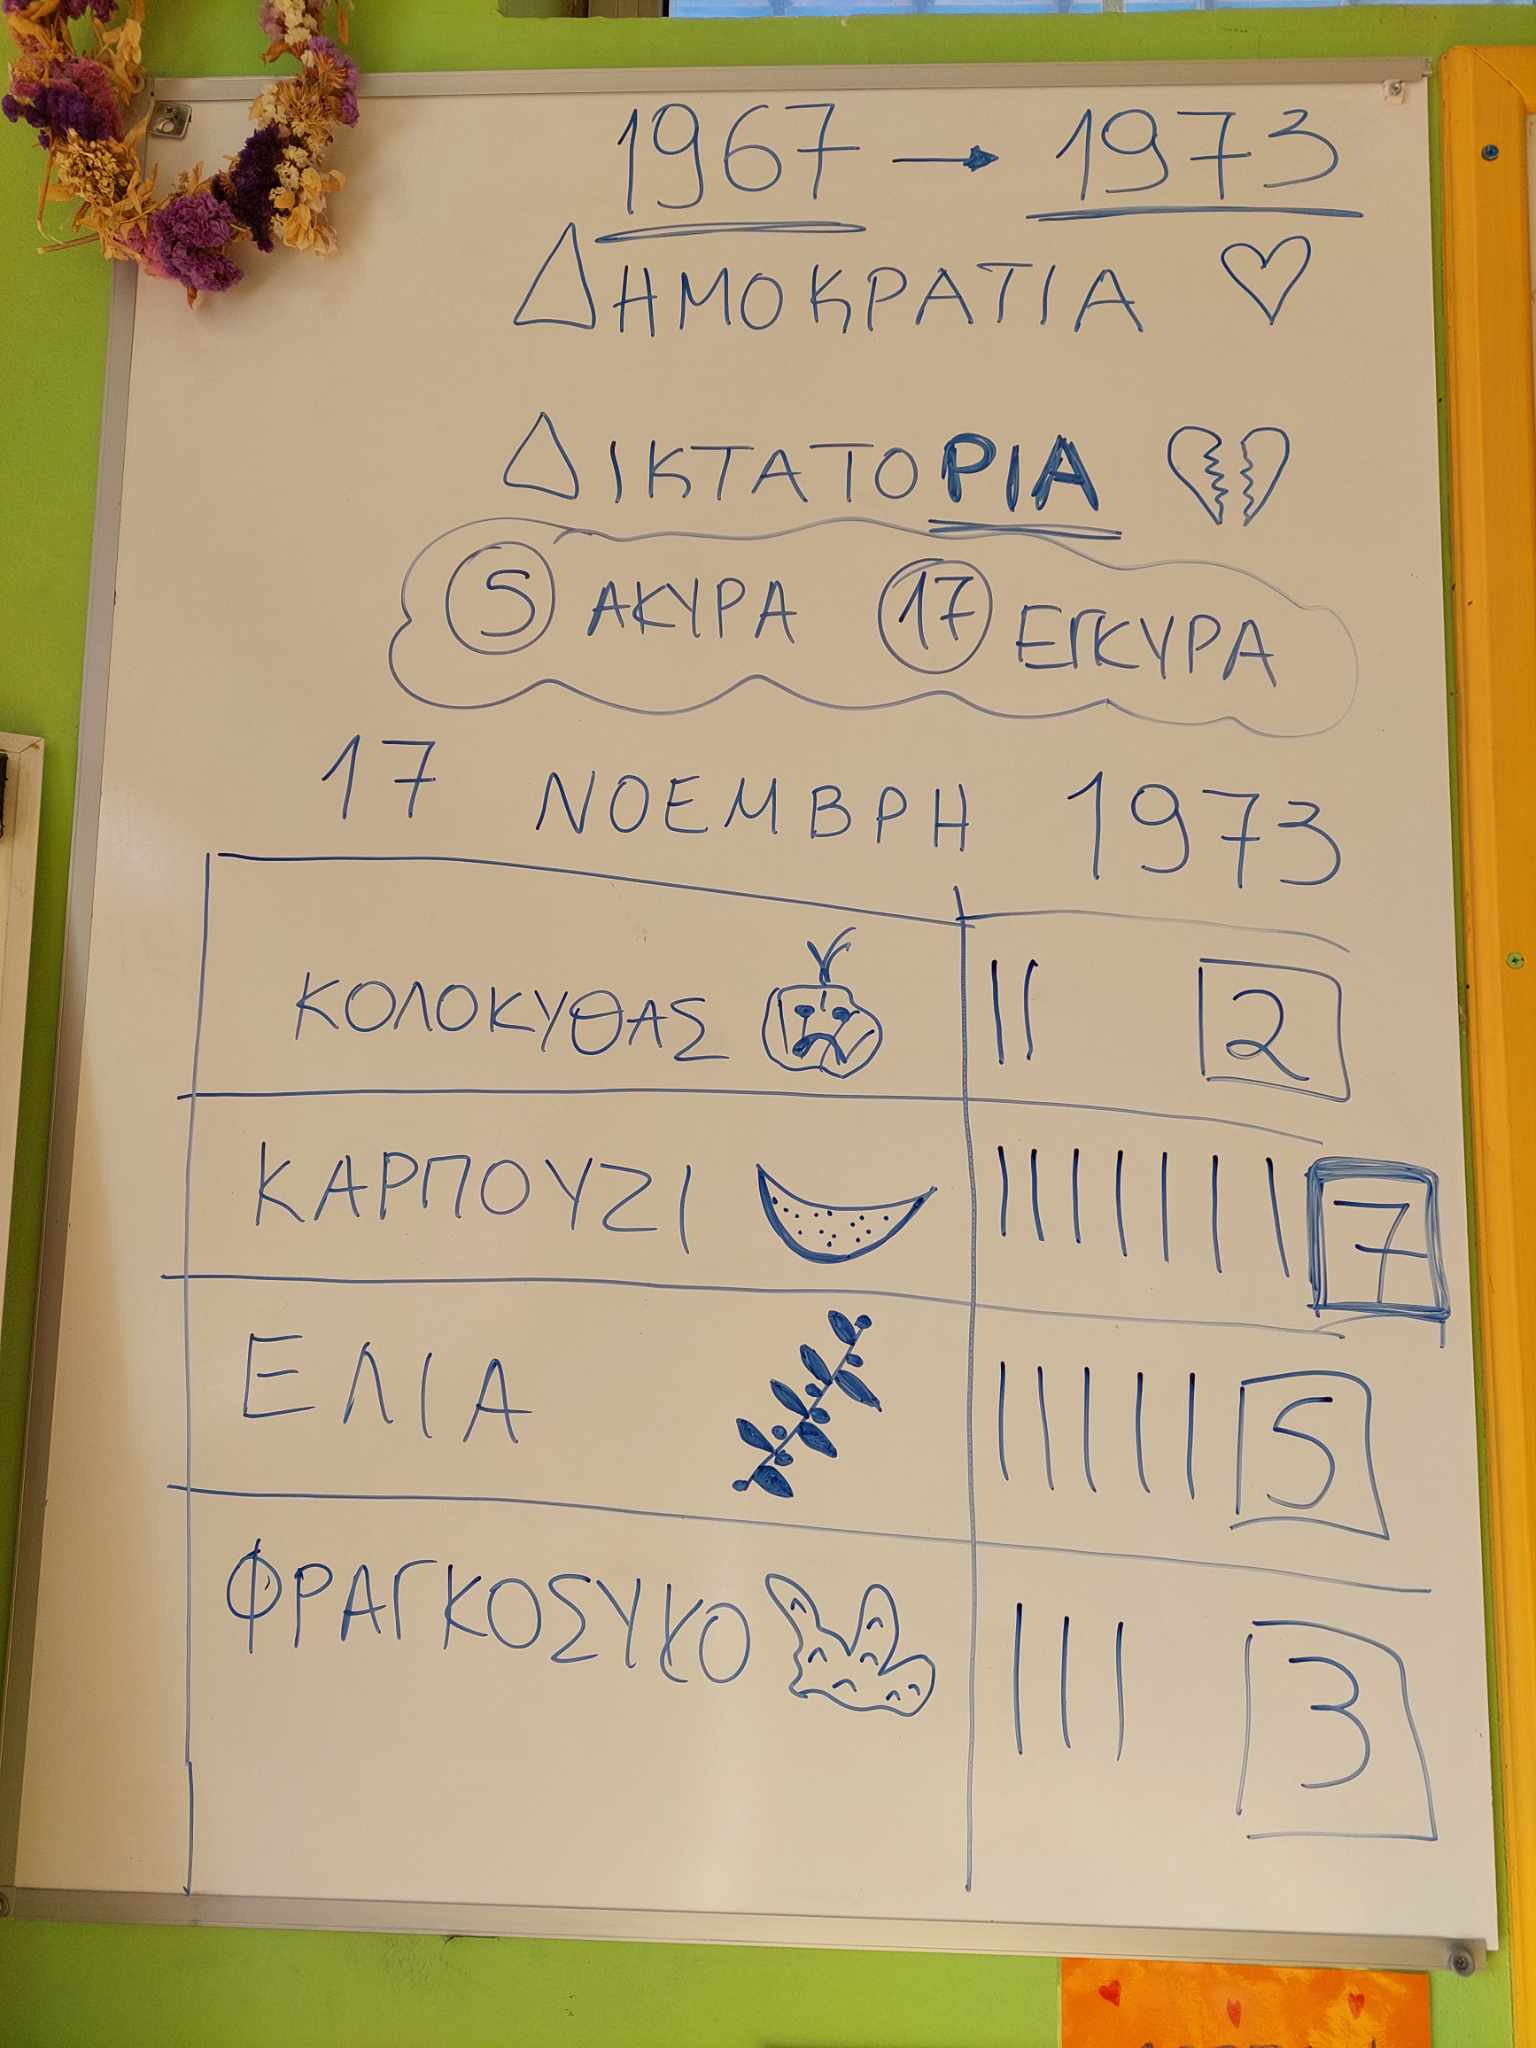 1967 → 1973
ΔΗΜΟΚΡΑΤΙΑ
ΔΙΚΤΑΤΟΡΙΑ
5 ΑΚΥΡΑ 17 ΕΓΚΥΡΑ
17 ΝΟΕΜΒΡΗ 1973
ΚΟΛΟΚΥΘΑΣ 2
ΚΑΡΠΟΥΖΙ 7
ΕΛΙΑ 5
ΦΡΑΓΚΟΣΥΚΟ 3